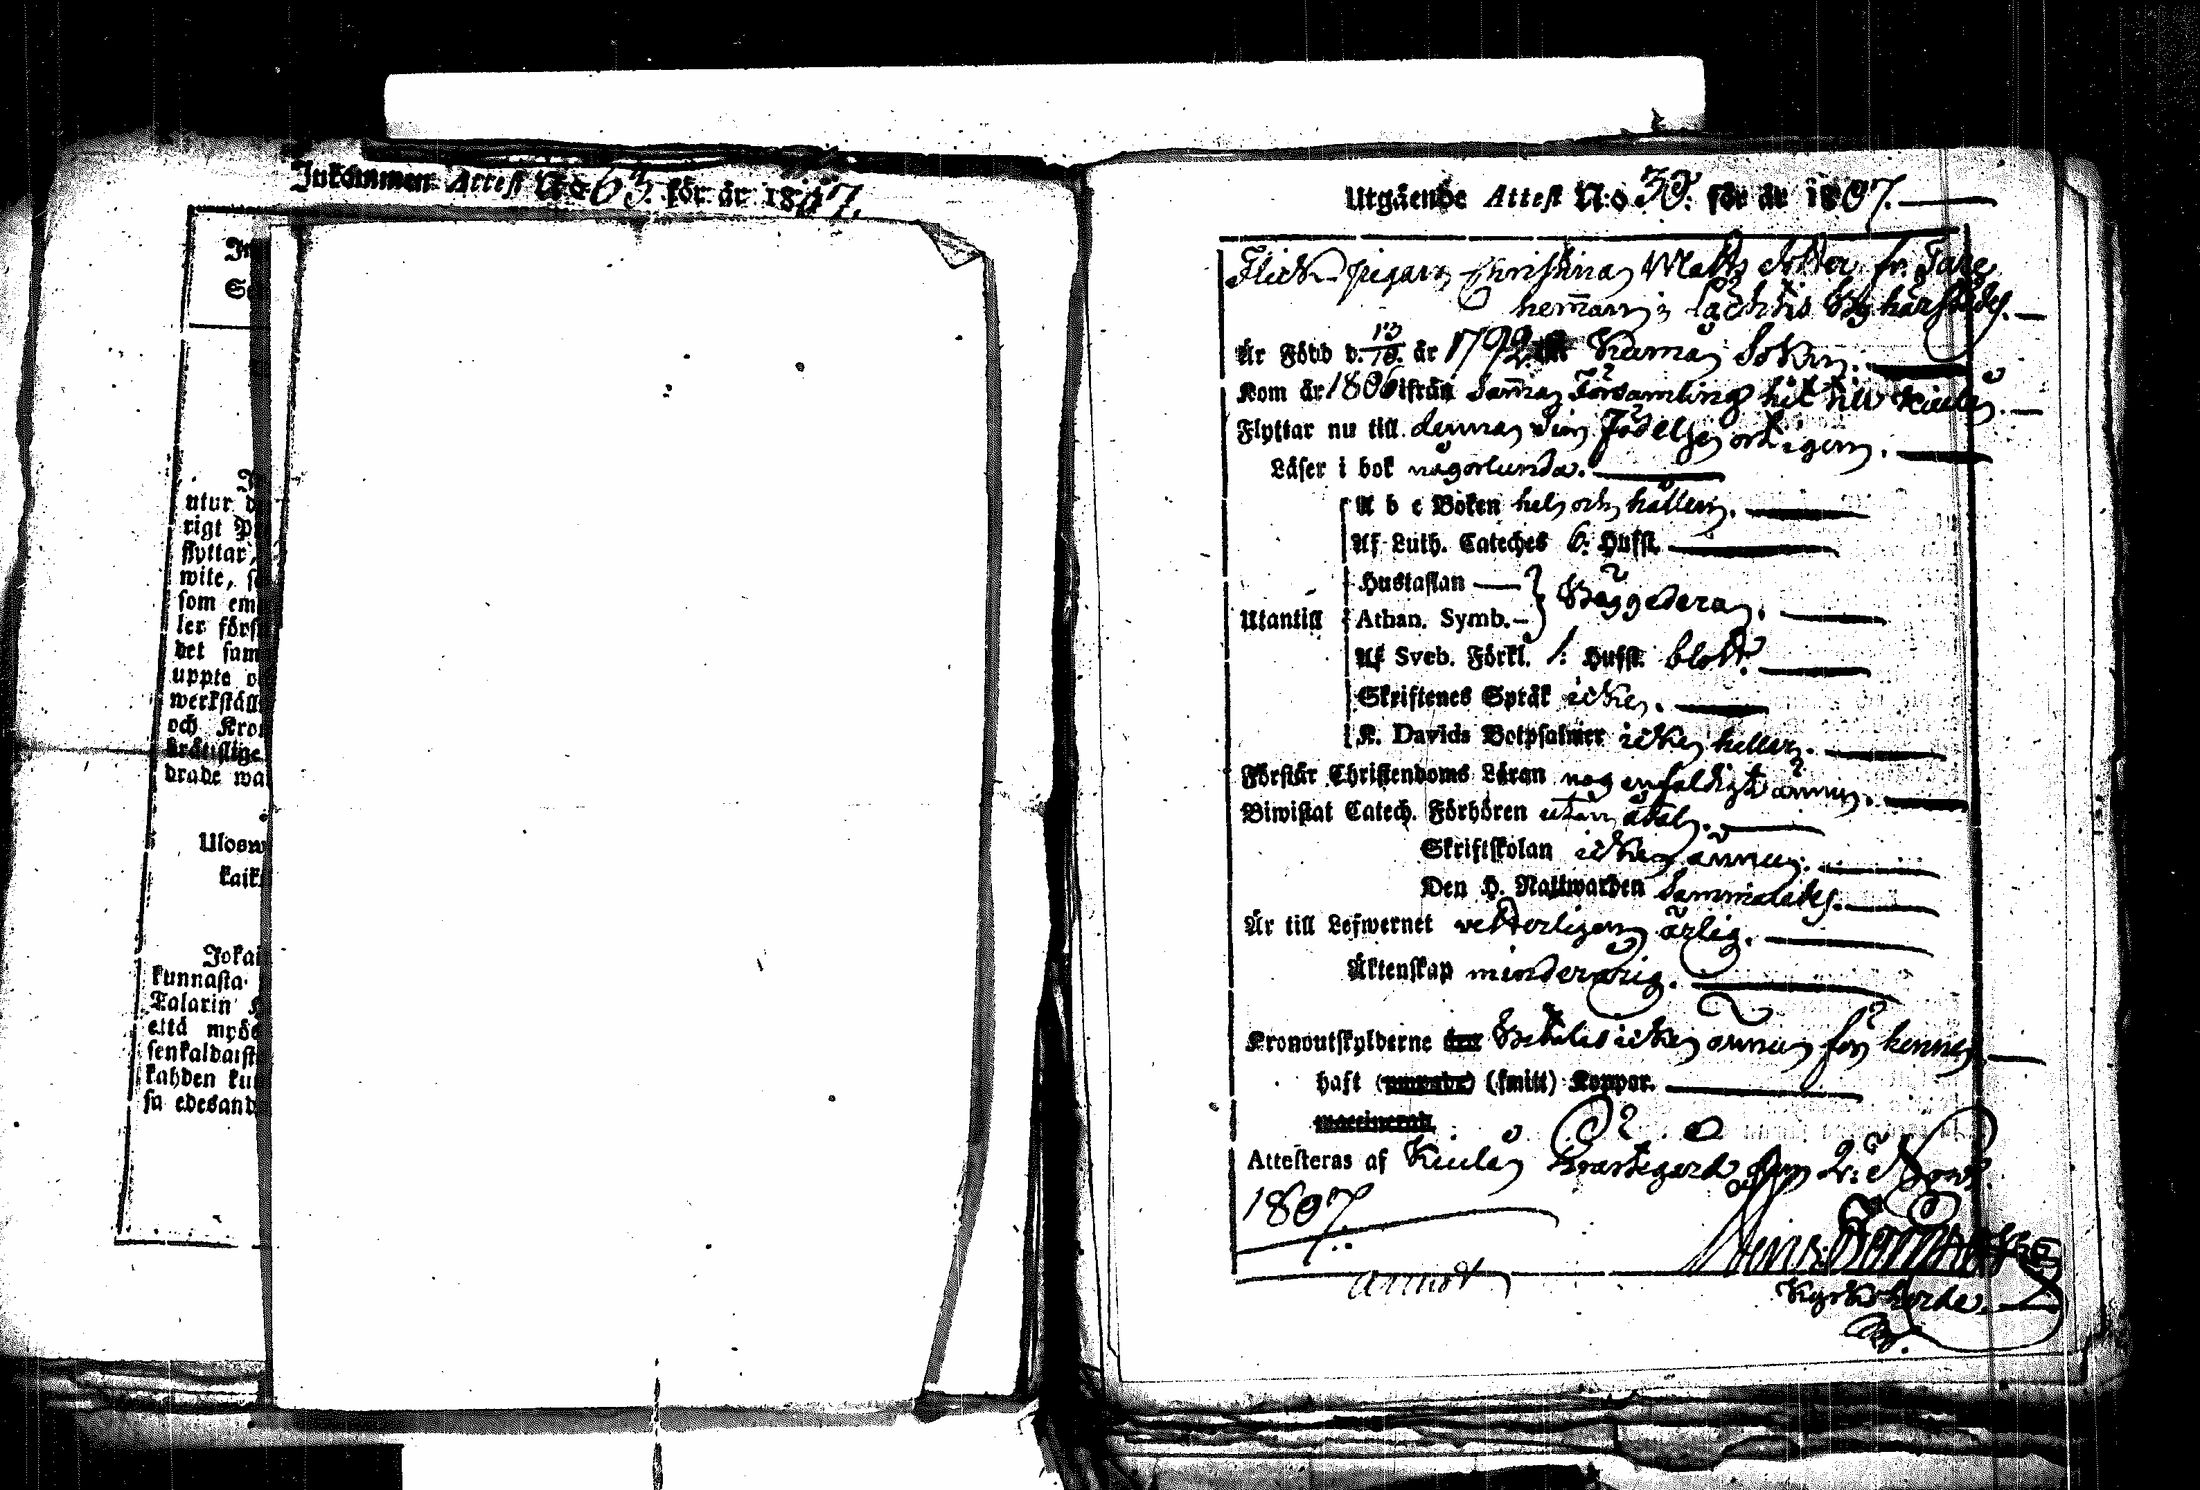 Inkommen Attest N:o 63. för år 1807.
utur
rigt
flyttar,
wite,
som em
ler förs
det sam
uppte
werkställ
och Kron
kräftslige
drade wa
Ulosw
kaik
Jokai
kunnasta
Talarin
että myös
senkaldaist
kahden kuu
sa edesand
Utgående Attest N:o för år 1807.
Flick pigan Christina Matts dotter fr.
hem̄an i By härstädes.
Är Född d. 13/10. år 1792 Kumå Sokn.
Kom år 1806 ifrån sam̄a Församling hit till Kiulå.
Flyttar nu till denna sin Födelse ort igen.
Läser i bok någorlunda.
A b c Boken hel och hållen.
Af Luth. Cateches 6: Hufst.
Hustaflan
Utantill Athan. Symb. Bäggedera.
Af Sveb. Förkl. 1: Hufst. blott.
Skriftenes Språk icke.
K. Davids Botpsalmer icke heller.
Förstår Christendoms Läran nog enfaldigt ännu.
Biwistat Catech. Förhören utan åtal.
Skriftskolan icke ännu.
Den H. Nattwarden sammaledes.
Är till Lefwernet vetterligen ärlig.
Äktenskap minderårig.
Kronoutskylderne Betalas icke ännu för henne.
haft (smitt) Koppor.
Attesteras af Kiulå Prästegård den 2: Nov.
1807.
Kyrkoherde.